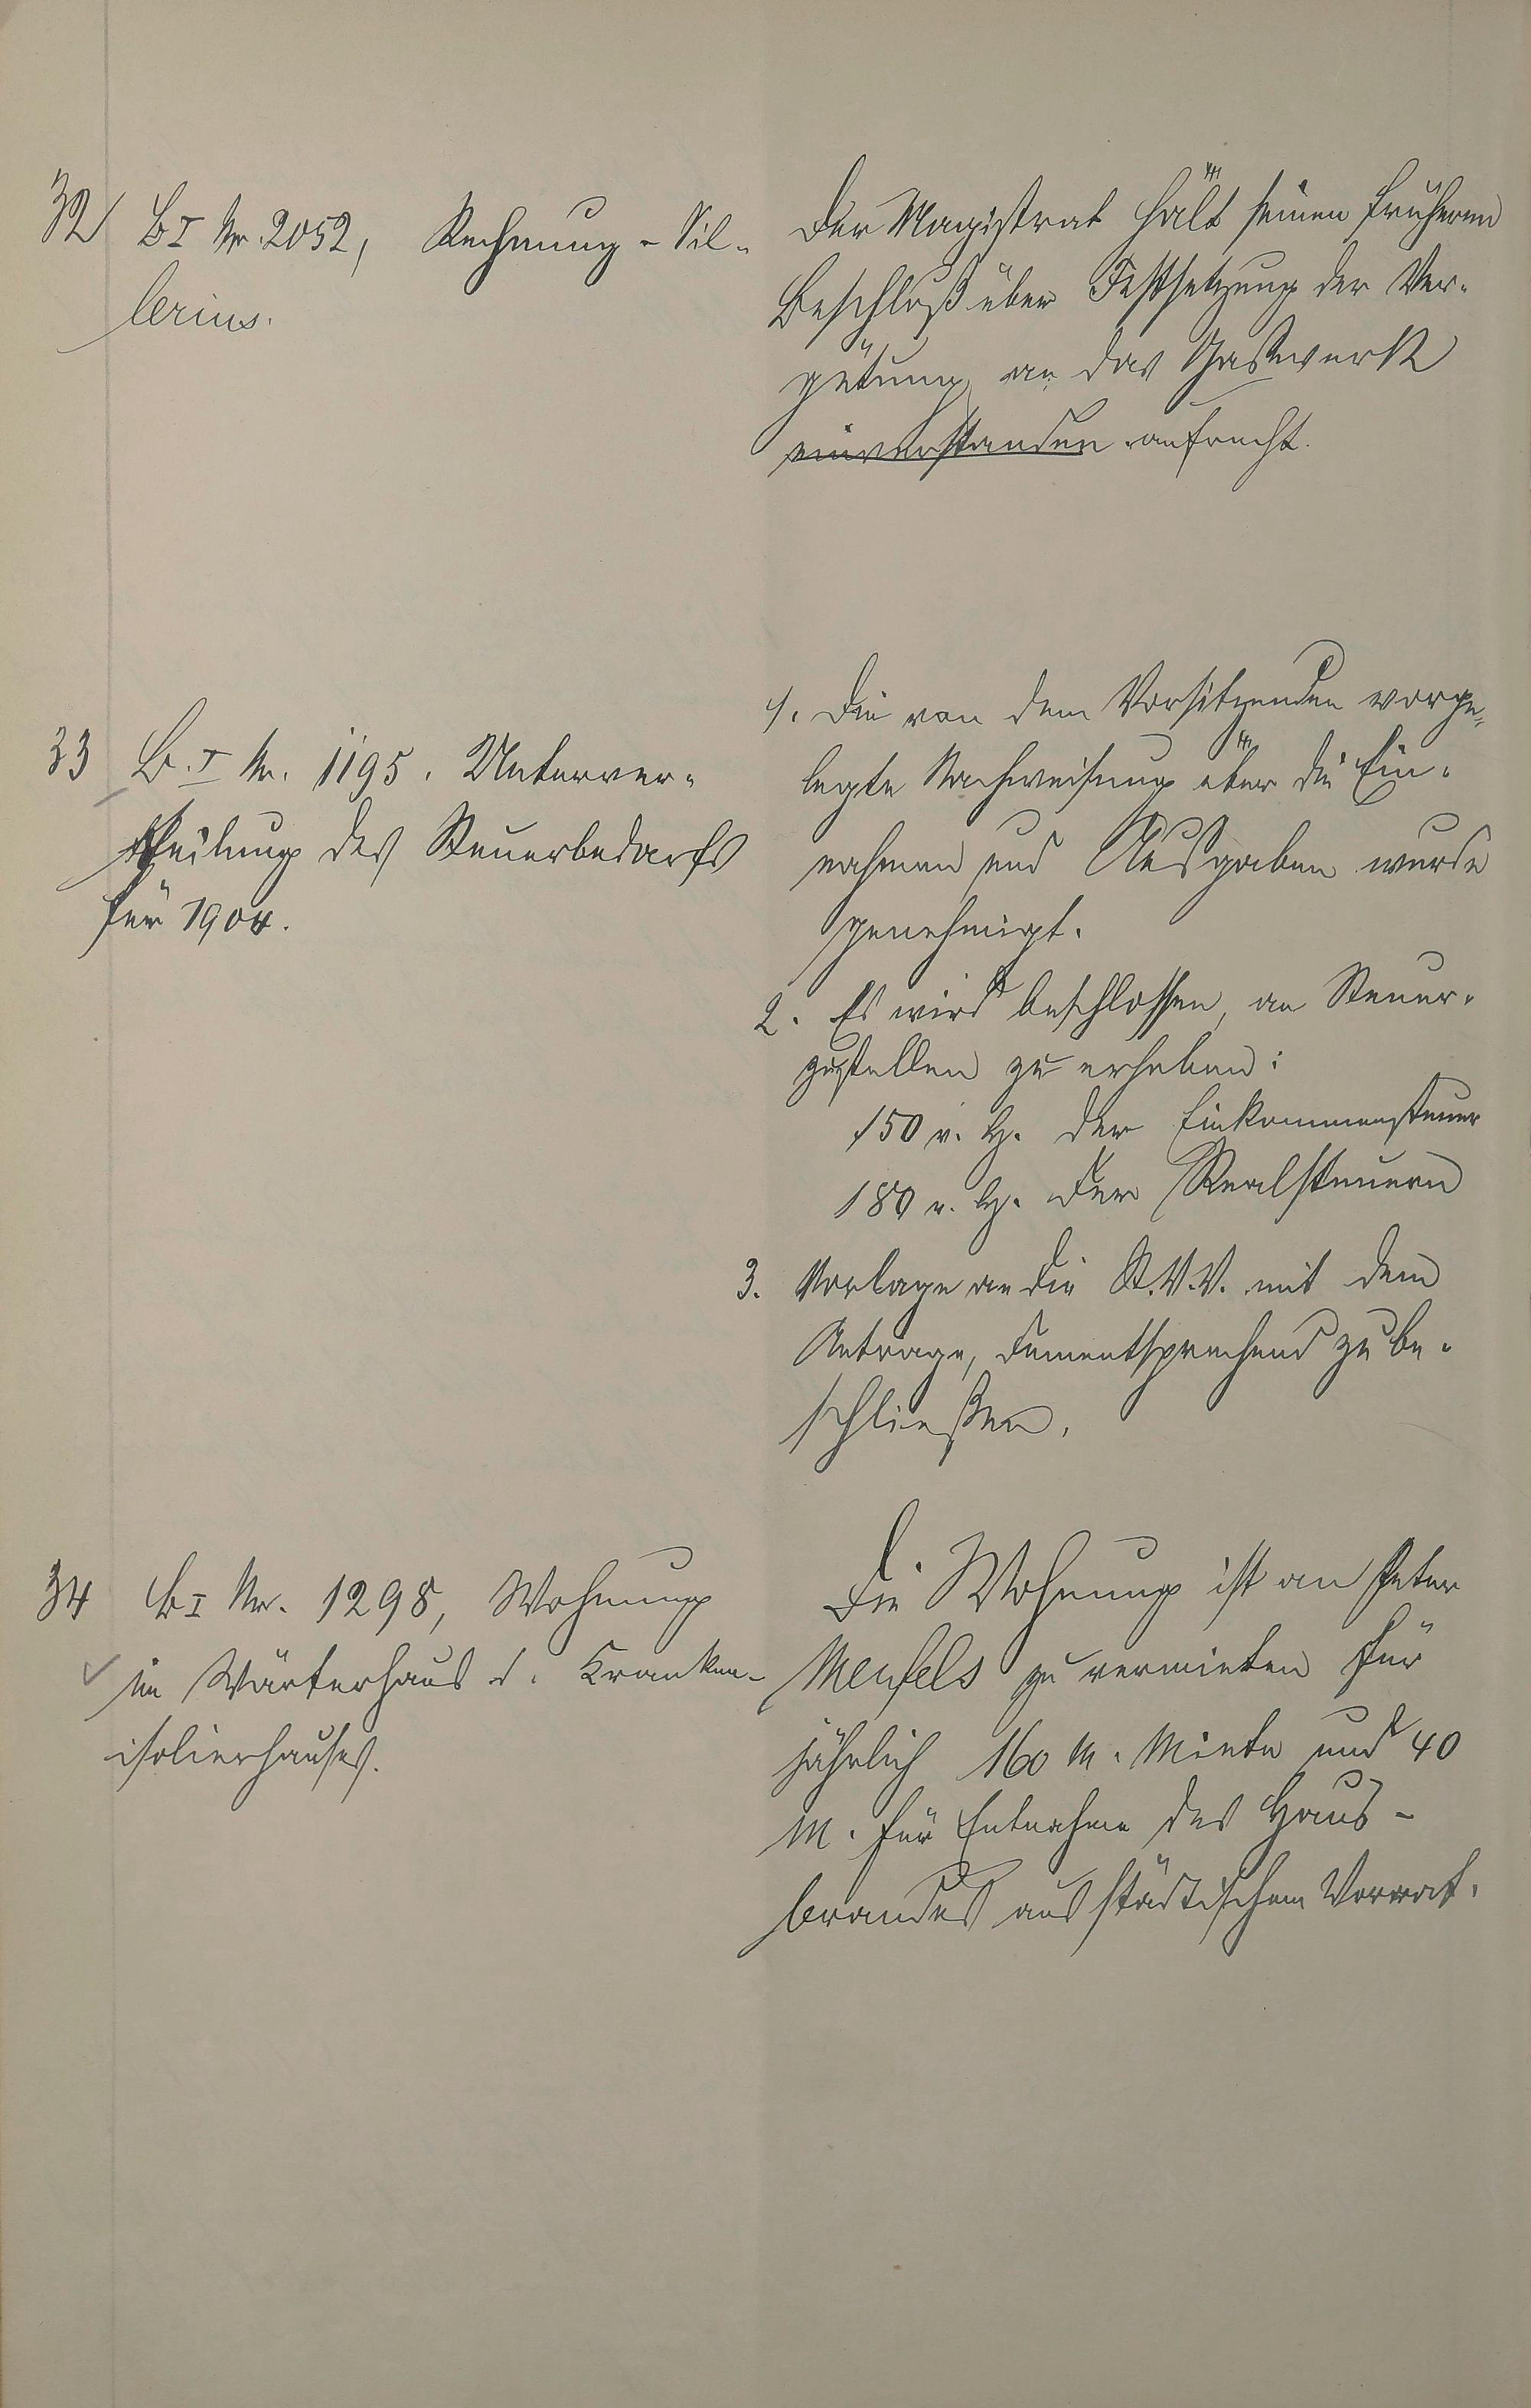 32 B I Nr. 2052, Rechnung - Sil-
lerius.
Der Magistrat hält seinen früheren
Beschluß über Festsetzung der Ver-
gütung an das Gaswerk
einverstanden aufrecht.
33 B. I Nr. 1195. Unterver-
theilung des Steuerbedarfs
für 1904.
1. Die von dem Vorsitzenden vorge-
legte Nachweisung über die Ein-
nahmen und Ausgaben wurde
genehmigt.
2. Es wird beschlossen, an Steuer-
zu erheben:
150 v. H. der Einkommensteuer
180 v. H. der Realsteuern
3. Vorlage an die St.V.V. mit dem
Antrage, dementsprechend zu be-
schließen.
34 B I Nr. 1298, Wohnung
im Wärterhaus d. Kranken-
isolierhauses.
Die Wohnung ist an Peter
Menfels zu vermieten für
jährlich 160 M. Miete und 40
M. für Entnahme des Haus-
brandes aus städtischem Vorrat.